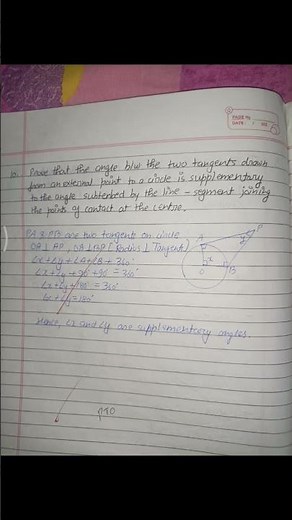 PAGE NO.
DATE
10. Prove that the angle b/w the two tangents drawn
from an external point to a circle is supplementary
to the angle subtended by the line-segment joining
the points of contact at the centre.
PA & PB are two tangents on circle
OA ⊥ AP, OB ⊥ BP (Radius ⊥ Tangent)
∠x + ∠y + ∠A + ∠B = 360°
∠x + ∠y + 90° + 90° = 360°
∠x + ∠y + 180° = 360°
∠x + ∠y = 180°
Hence, ∠x and ∠y are supplementary angles.
A
P
y
x
O
B
PTO